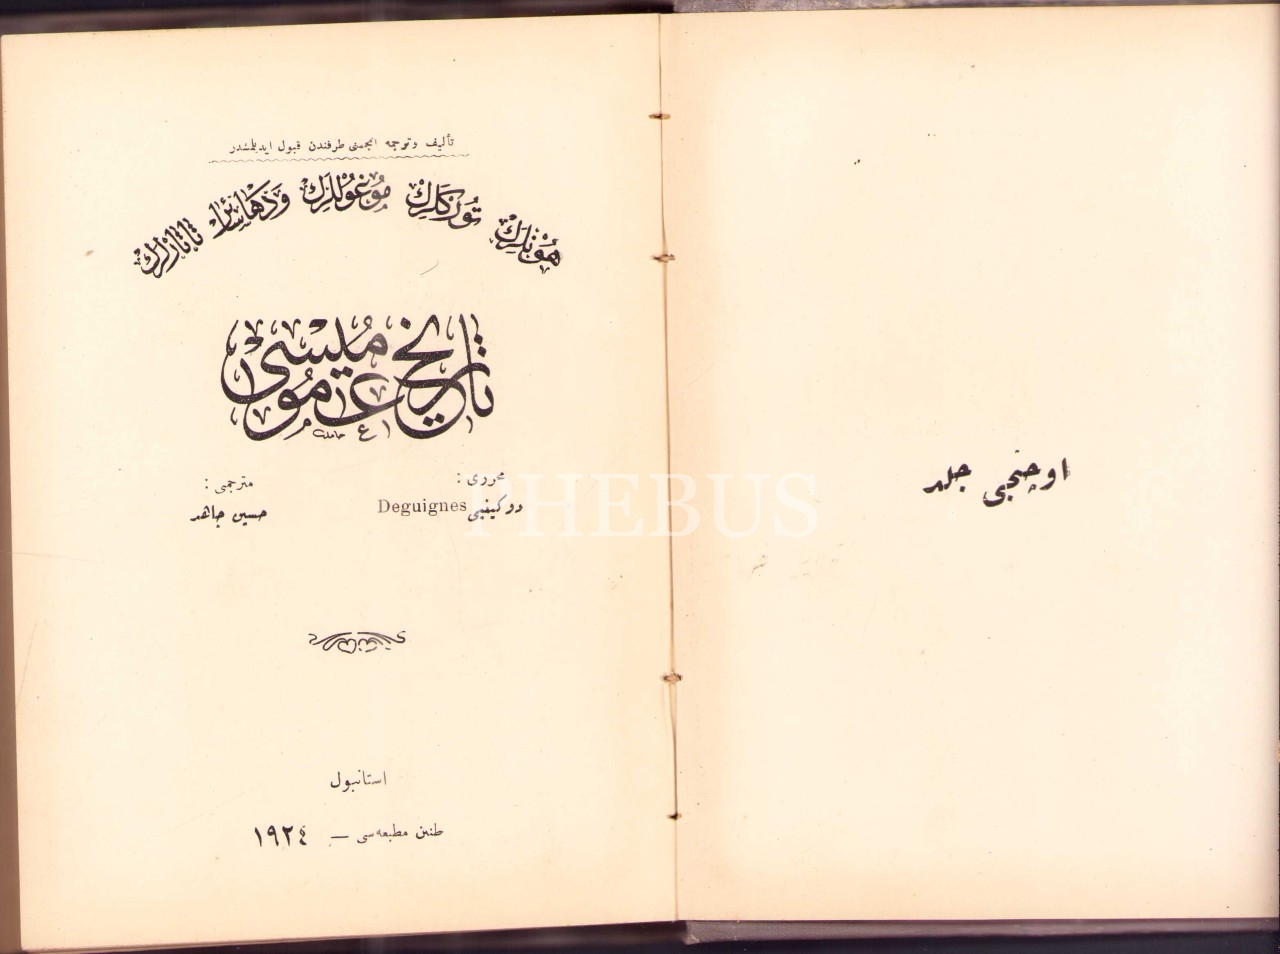 اوچنجى جلد
تأليف وترجمه انجمنى طرفندن قبول ايدلمشدر
هونلرك توركلرك موغوللرك ودها سائر تاتارلرك
تاريخ عموميسى
حامد
محررى :
دوكينيى Deguignes
مترجمى :
حسين جاهد
استانبول
طنين مطبعه‌سى — ١٩٢٤
PHEBUS